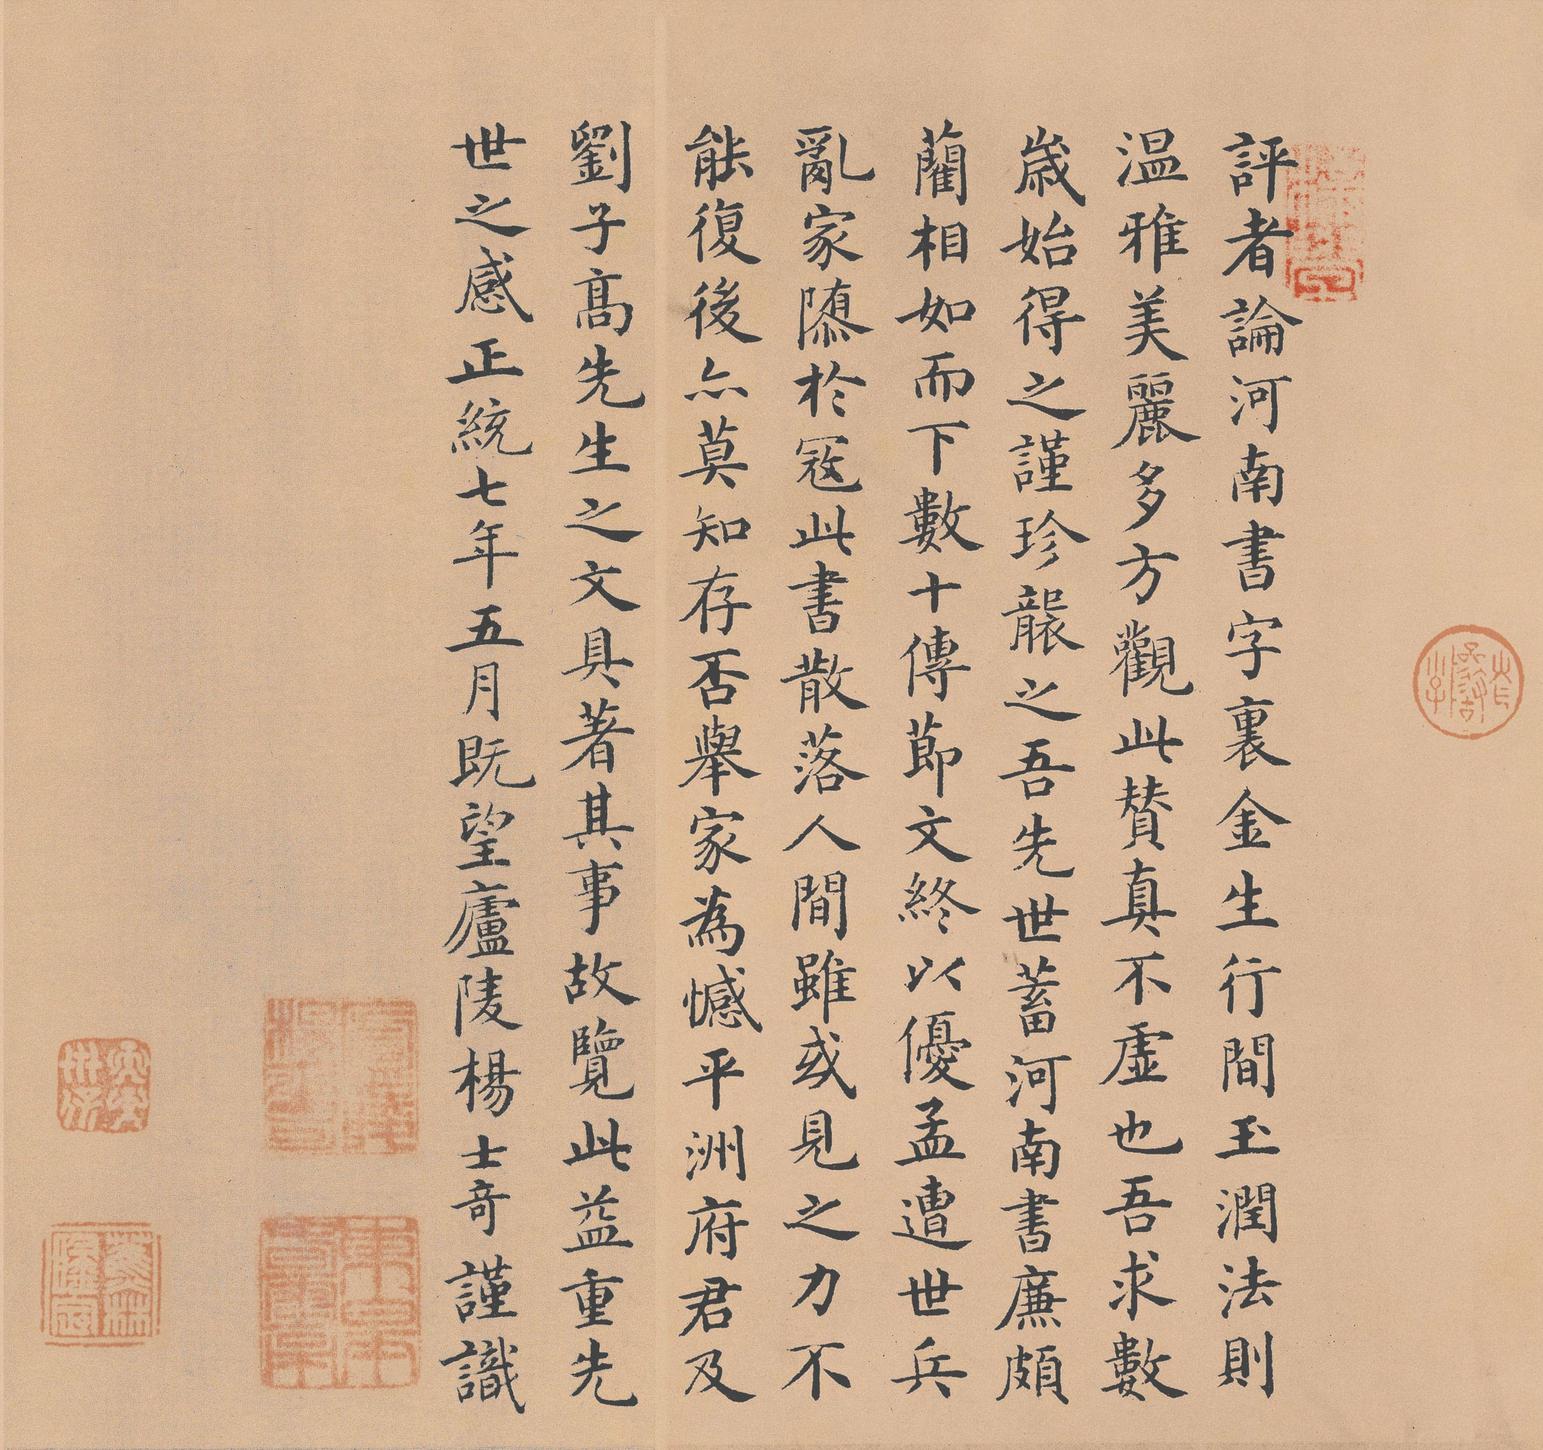 評者論河南書字裏金生行間玉潤法則
温雅美麗多方觀此賛真不虛也吾求數
歲始得之謹珍襲之吾先世蓄河南書廉頗
藺相如而下數十傳節文終以優孟遭世兵
亂家隳於冦此書散落人間雖或見之力不
能復後亦莫知存否舉家為憾平洲府君及
劉子髙先生之文具著其事故覽此益重先
世之感正統七年五月既望廬陵楊士奇謹識